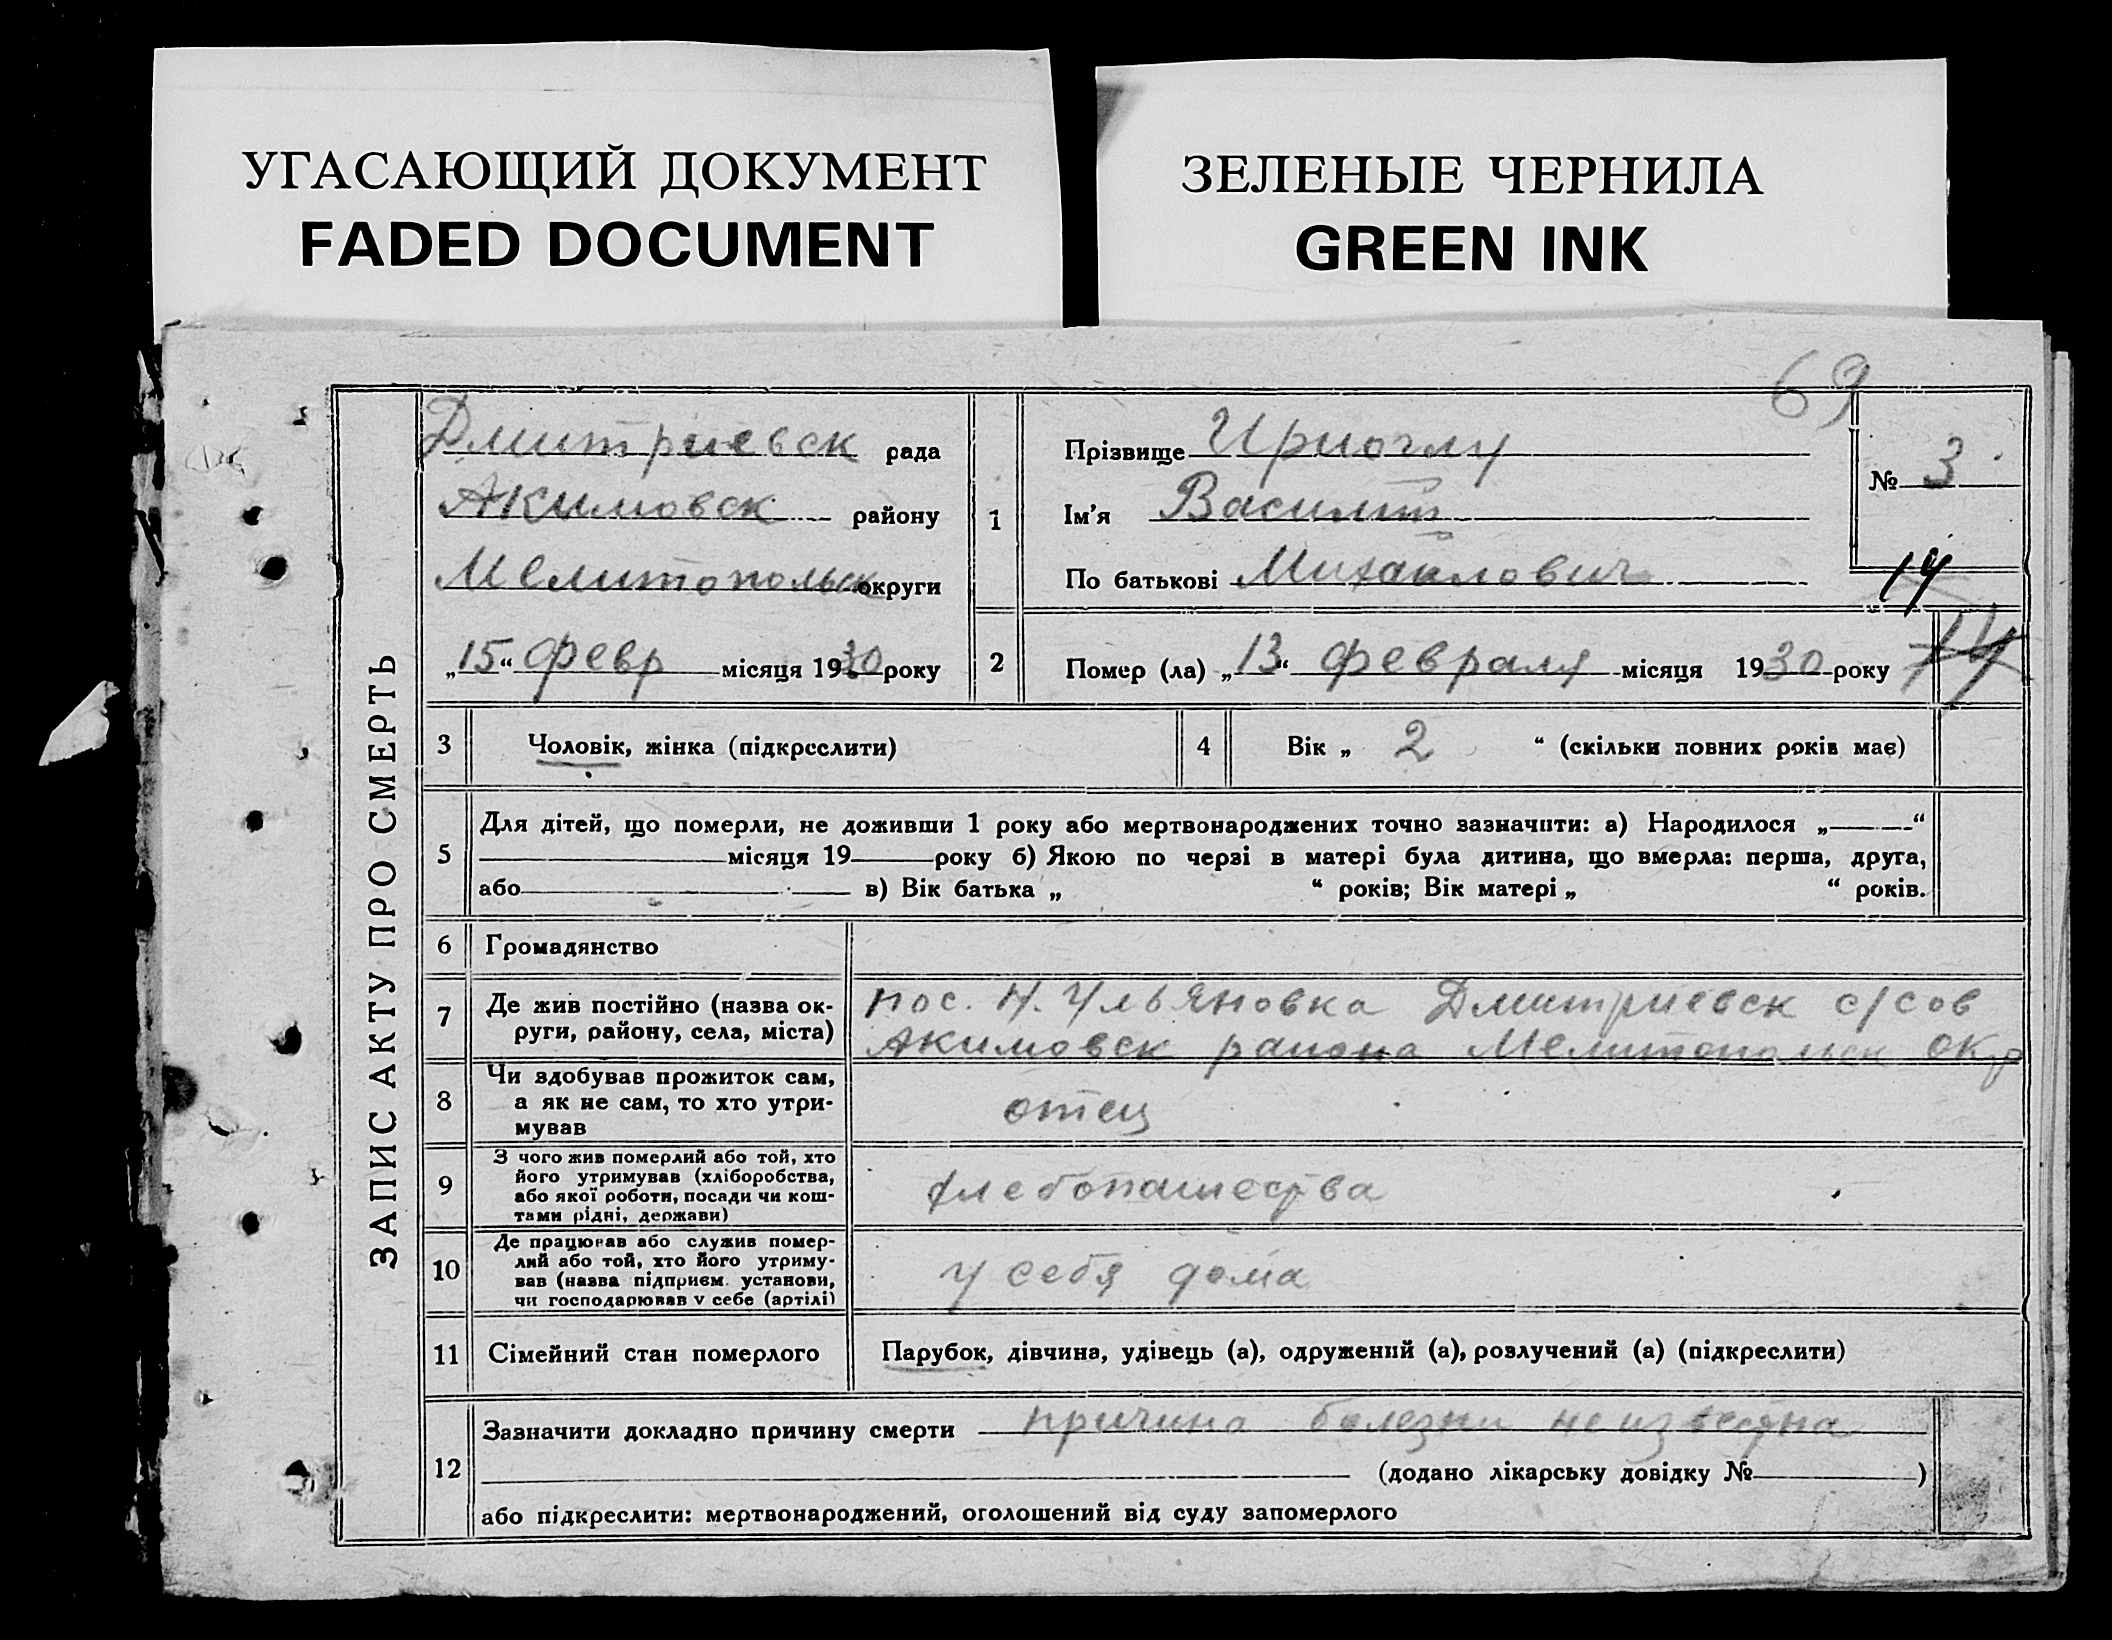 УГАСАЮЩИЙ ДОКУМЕНТ
FADED DOCUMENT
ЗЕЛЕНЫЕ ЧЕРНИЛА
GREEN INK
69
ЗАПИС АКТУ ПРО СМЕРТЬ
Дмитриевск рада
Акимовск району
Мелитопольск округи
„15“ февр місяця 1930 року
1
Прізвище Ириоглу
Ім'я Василий
По батькові Михайлович
№ 3
14
2 Помер (ла) „13“ февраля місяця 1930 року
14
3 Чоловік, жінка (підкреслити)
4 Вік „ 2 “ (скільки повних років має)
5 Для дітей, що померли, не доживши 1 року або мертвонароджених точно зазначити: а) Народилося „ “
місяця 19 року б) Якою по черзі в матері була дитина, що вмерла: перша, друга,
або в) Вік батька „ “ років; Вік матері „ “ років.
6 Громадянство
7 Де жив постійно (назва ок-
руги, району, села, міста)
пос. Н. Ульяновка Дмитриевск с/сов
Акимовск района Мелитопольск окр
8 Чи здобував прожиток сам,
а як не сам, то хто утри-
мував
отец
9 З чого жив померлий або той, хто
його утримував (хліборобства,
або якої роботи, посади чи кош-
тами рідні, держави)
хлебопашества
10 Де працював або служив помер-
лий або той, хто його утриму-
вав (назва підприєм. установи,
чи господарював у себе (артілі)
у себя дома
11 Сімейний стан померлого
Парубок, дівчина, удівець (а), одружений (а), розлучений (а) (підкреслити)
12 Зазначити докладно причину смерти причина болезни неизвестна
(додано лікарську довідку № )
або підкреслити: мертвонароджений, оголошений від суду запомерлого